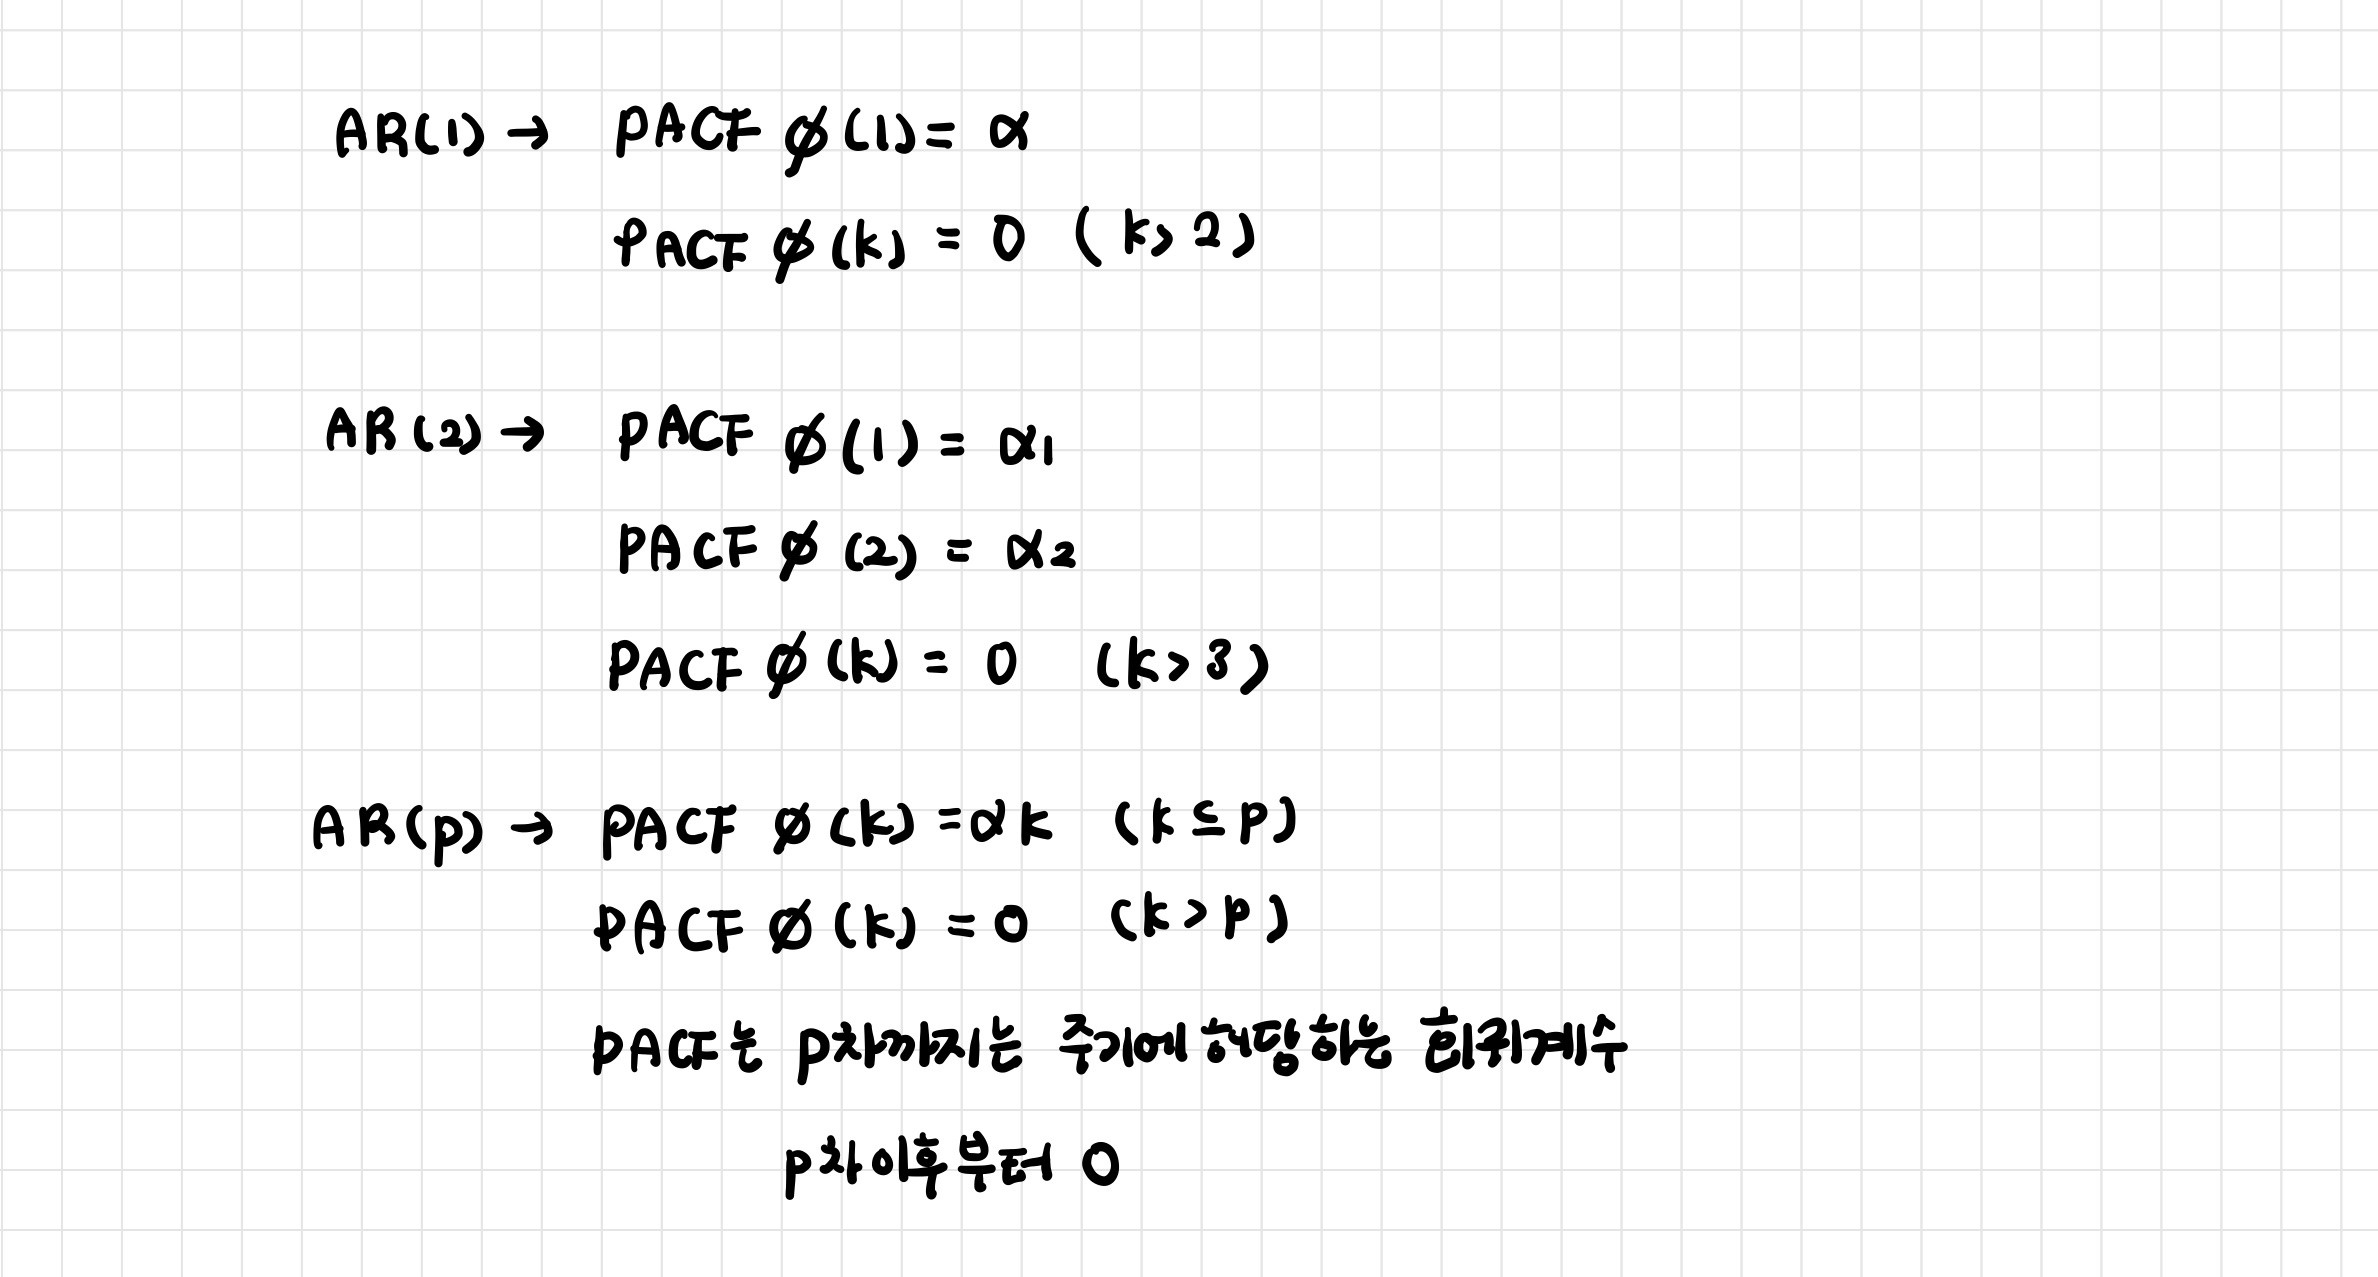 AR(1) → PACF ø(1) = α
PACF ø(k) = 0 (k> 2)
AR(2) → PACF ø(1) = α1
PACF ø(2) = α2
PACF ø(k) = 0 (k>3)
AR(p) → PACF ø(k) =αk (k≤p)
PACF ø(k) = 0 (k>p)
PACF는 p차까지는 주기에 해당하는 회귀계수
p차이후부터 0